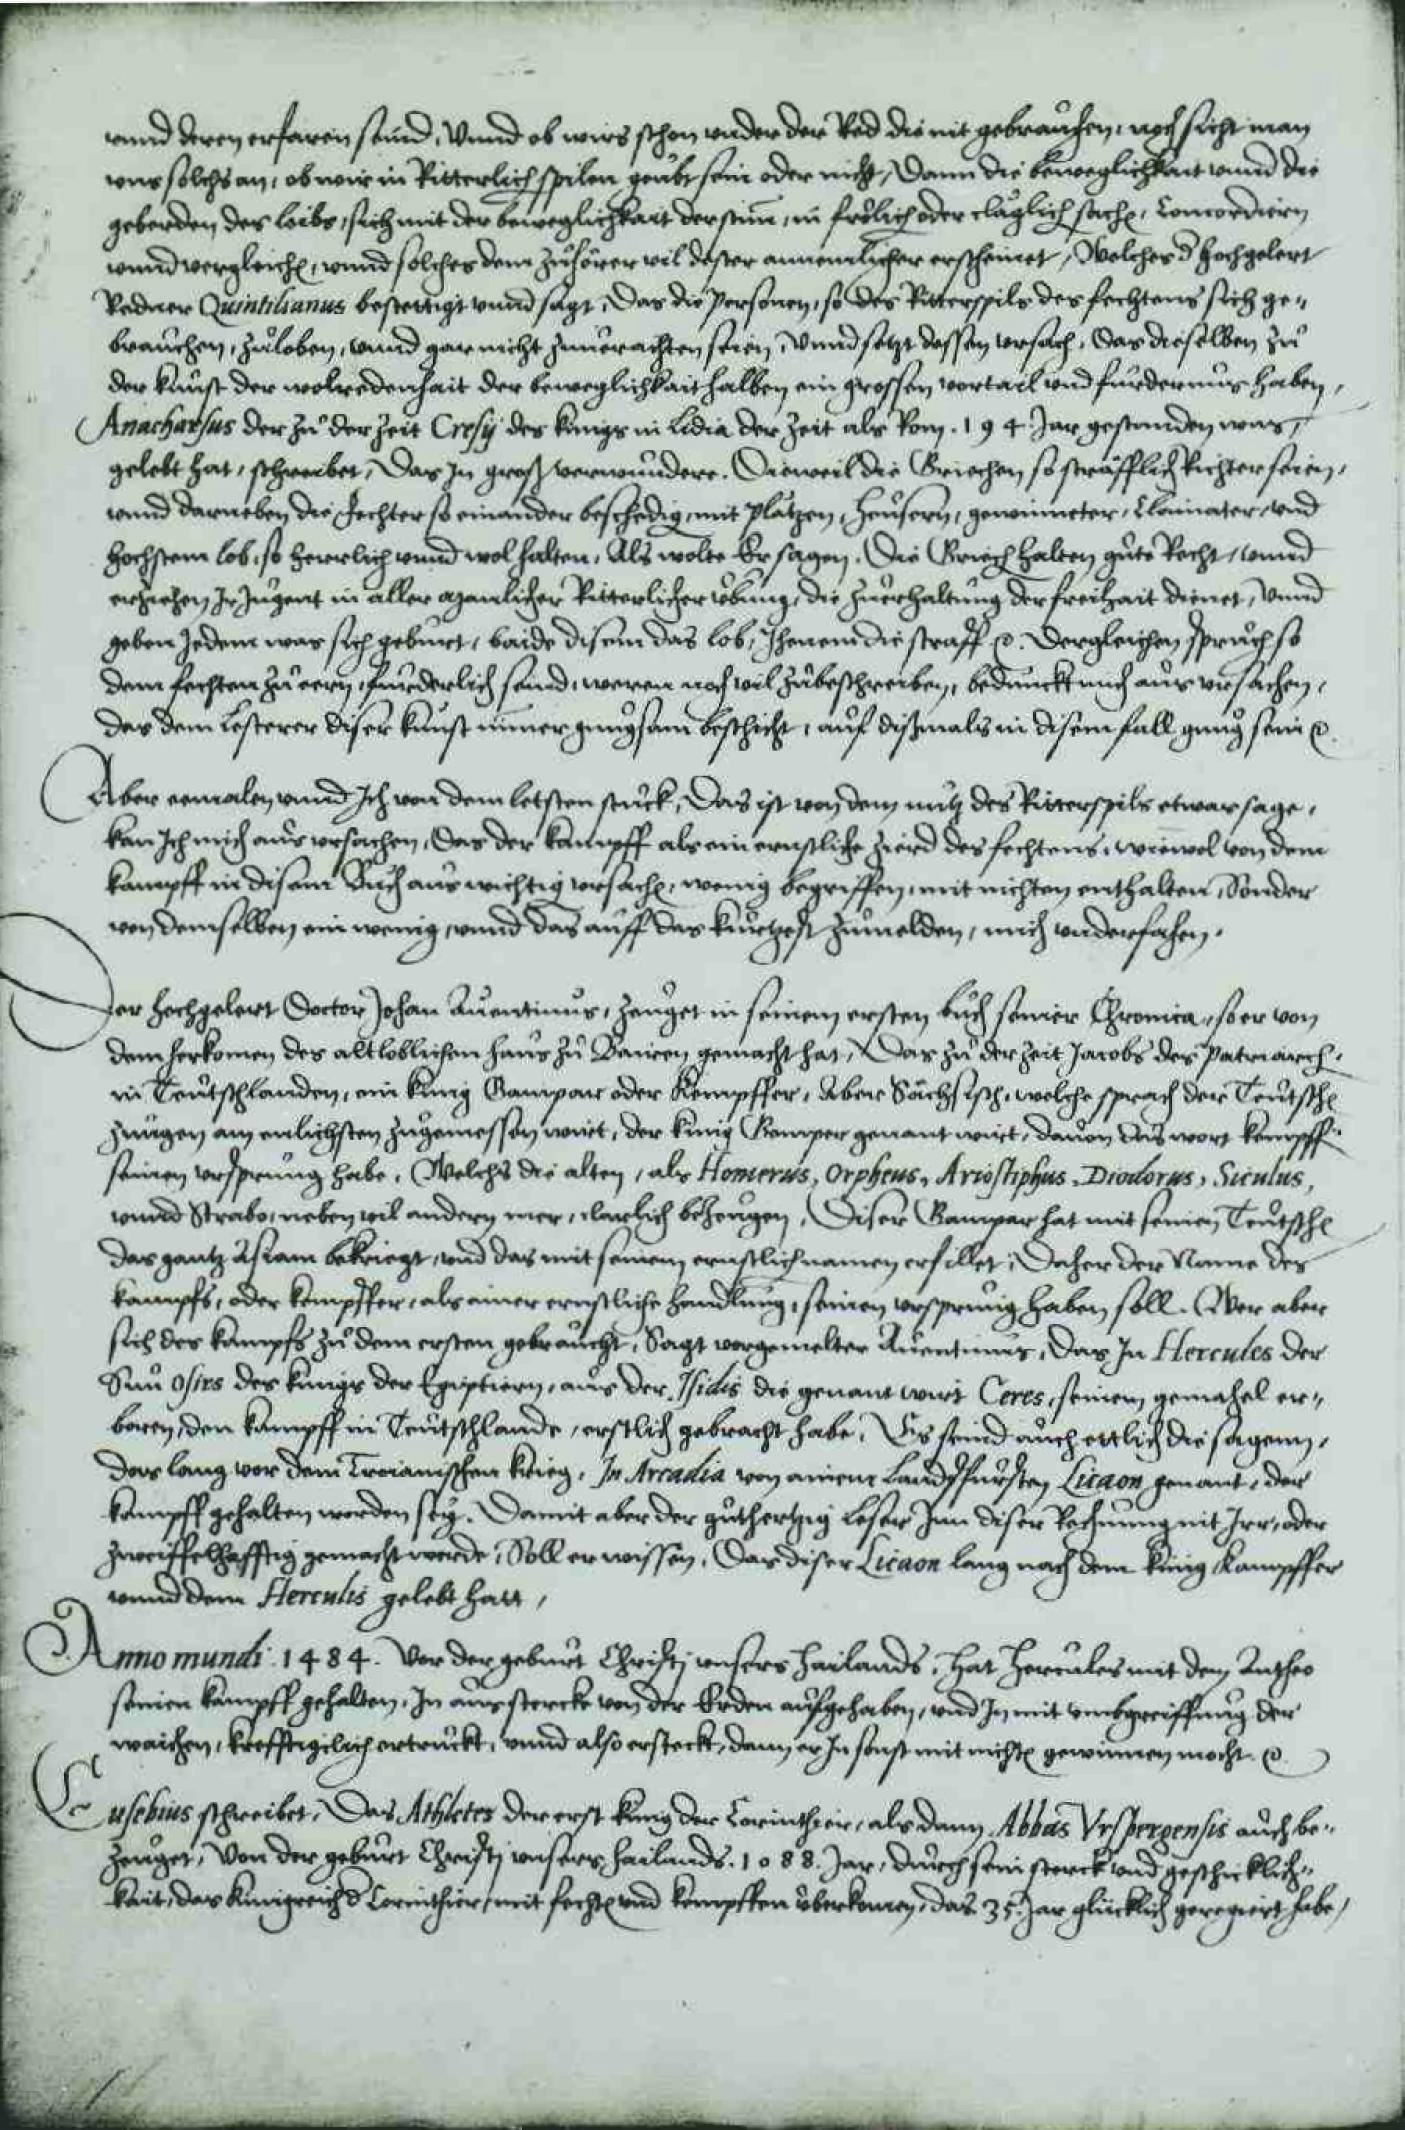 vnnd deren erfaren seind, Vnnd ob wirs schon vnder der Red die nit gebrauchen, noch sicht man
vns solchs an, ob wir in Ritterlich spilen geübt sein oder nicht, Dann die beweglichkait vnnd die
geberden des leibs, sich mit der beweglichkait der stim, in frölich oder cläglich sach, Concordiern
vnnd vergleich, vnnd solches dem zuhörer vil dester annemlicher erscheinet, Welches d hochgelert
Redner Quintilianus bestettigt vnnd sagt, Das die Personen, so des Ritterspils des fechtens sich ge„
brauchen, zuloben, vnnd gar nicht zuuerachten seien, Vnnd setzt dessen vrsach, Das dieselben zu
der kunst der wolredenhait der beweglichkait halben ein grossen vortail vnd fürdernus haben,
Anacharsus der zu der zeit Cresÿ des kunigs in Lidia der zeit als Rom. 194. Jar gestanden was,
gelebt hat, schreibet, Das In groß verwundere. Dieweil die Griechen so sträfflich Richter seien,
vnnd darneben die Fechter so einander beschedig, mit Plätzen, Heusern, vnd
höchstem lob, so herrlich vnnd wol halten, Als wolte Er sagen. Die Griech halten gute Recht, vnnd
erziehen Ir Jugent in aller Ritterlicher übung, die zuerhaltung der freihait dienet, Vnnd
geben Jedem was sich gebüret, baide disem das lob, Jhenem die straff &. Dergleichen spruch so
dem fechten zu eern, fürderlich seind, weren noch vil zubeschreiben, bedunckt mich aus vrsachen,
das dem Lesterer diser kunst nimer gnugsam beschicht, auf dißmals in disem fall gnug sein &.
Aber eemalen vnnd Ich von dem letsten stuck, Das ist von dem nutz des Ritterspils etwas sage,
kan Ich mich aus vrsachen, Das der kampff als ein ernstliche zierd des fechtens, wiewol von dem
kampff in disem Buch aus wichtig vrsach, wenig begriffen, mit nichten enthalten, Sonder
von demselben ein wenig, vnnd das auff das kürtzest zumelden, mich vnderfahen.
Der hochgelert Doctor Johan Auentinus, zeuget in seinem ersten buch seiner Chronica, so er von
dem herkomen des altloblichen haus zu Bairen gemacht hat, Das zu der zeit Jacobs des Patriarch,
in Teutschlanden, ein kunig Gampar oder Kempffer, Aber Sächsisch, welche sprach der Teutsch
zungen am enlichsten zugemessen wirt, der kunig Kemper genant wirt, dauon das wort kempff
seinen vrsprung habe, Welchs die alten, als Homerus, Orpheus, Aristiphus, Diodorus, Siculus,
vnnd Strabo, neben vil andern mer, clarlich bezeugen, Diser Gampar hat mit seinen Teutsch
das gantz Asiam bekriegt, vnd das mit seinem ernstlich namen erfillet, Daher der Name des
kampfs, oder kempffer, als ainer ernstliche handlung, seinen vrsprung haben soll. Wer aber
sich des kampfs zu dem ersten gebraucht, Sagt vorgemelter Auentinus, Das In Hercules der
Sun Osiris des kunigs der Egiptiern, aus der Isidis die genant wirt Ceres, seinem gemahel er„
boren, den kampff in Teutschlande, erstlich gebracht habe, Es seind auch ettlich die sagenn,
das lang vor dem Troianischen krieg, In Arcadia von ainem Landsfürsten Licaon genant, der
kampff gehalten worden seÿ. Damit aber der guthertzig Leser Inn diser Rechnung nit Irr, oder
zweiffelhafftig gemacht werde, Soll er wissen, Das diser Licaon lang nach dem kunig Kampffer
vnnd dem Herculis gelebt hatt,
Anno mundi. 1484. Vor der geburt Christi vnsers Hailands, Hat Hercules mit dem Antheo
seinen kampff gehalten, In aus stercke von der Erden aufgehaben, vnd In mit vmbgreiffung der
waichen, krefftigilich ertruckt, vnnd also ersteckt, dann er In sonst mit nicht gewinnen mocht &.
Eusebius schreibet, Das Athletes der erst kunig der Corinthier, als dann Abbas Vrspergensis auch be„
zeuget, Von der geburt Christi vnsers Hailands. 1088. Jar, durch sein sterck vnd geschicklich„
kait, das kunigreich d Corinthier, mit fecht vnd kempffen überkomen, das 35. Jar glücklich geregiert habe,